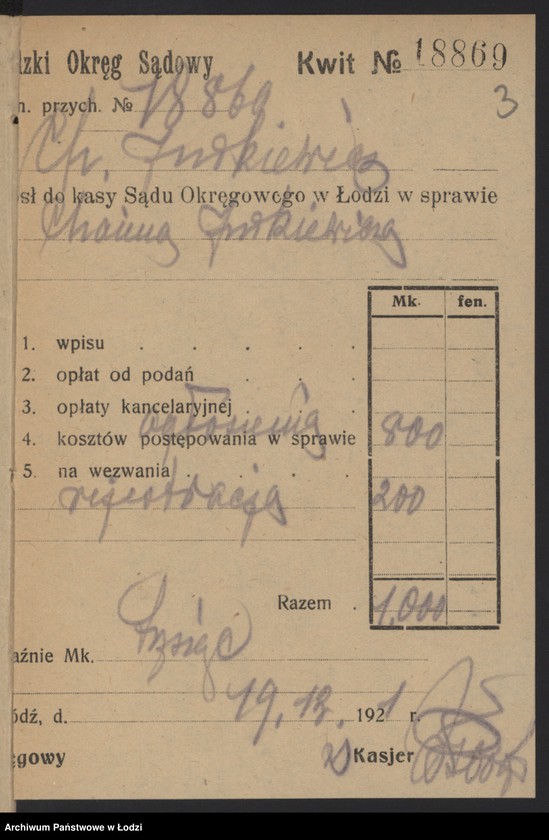 dzki Okręg Sądowy Kwit № 18869
3
n. przych. № 18869
Ch. Judkiewicz
sł do kasy Sądu Okręgowego w Łodzi w sprawie
Chaima Judkiewicza
Mk. fen.
1. wpisu
2. opłat od podań
3. opłaty kancelaryjnej
ogłoszenia
4. kosztów postępowania w sprawie 800
5. na wezwania
rejestracja 200
Razem 1,000
tysiąc
aźnie Mk.
ódź, d. 19.12. 1921 r.
ęgowy Kasjer
Archiwum Państwowe w Łodzi